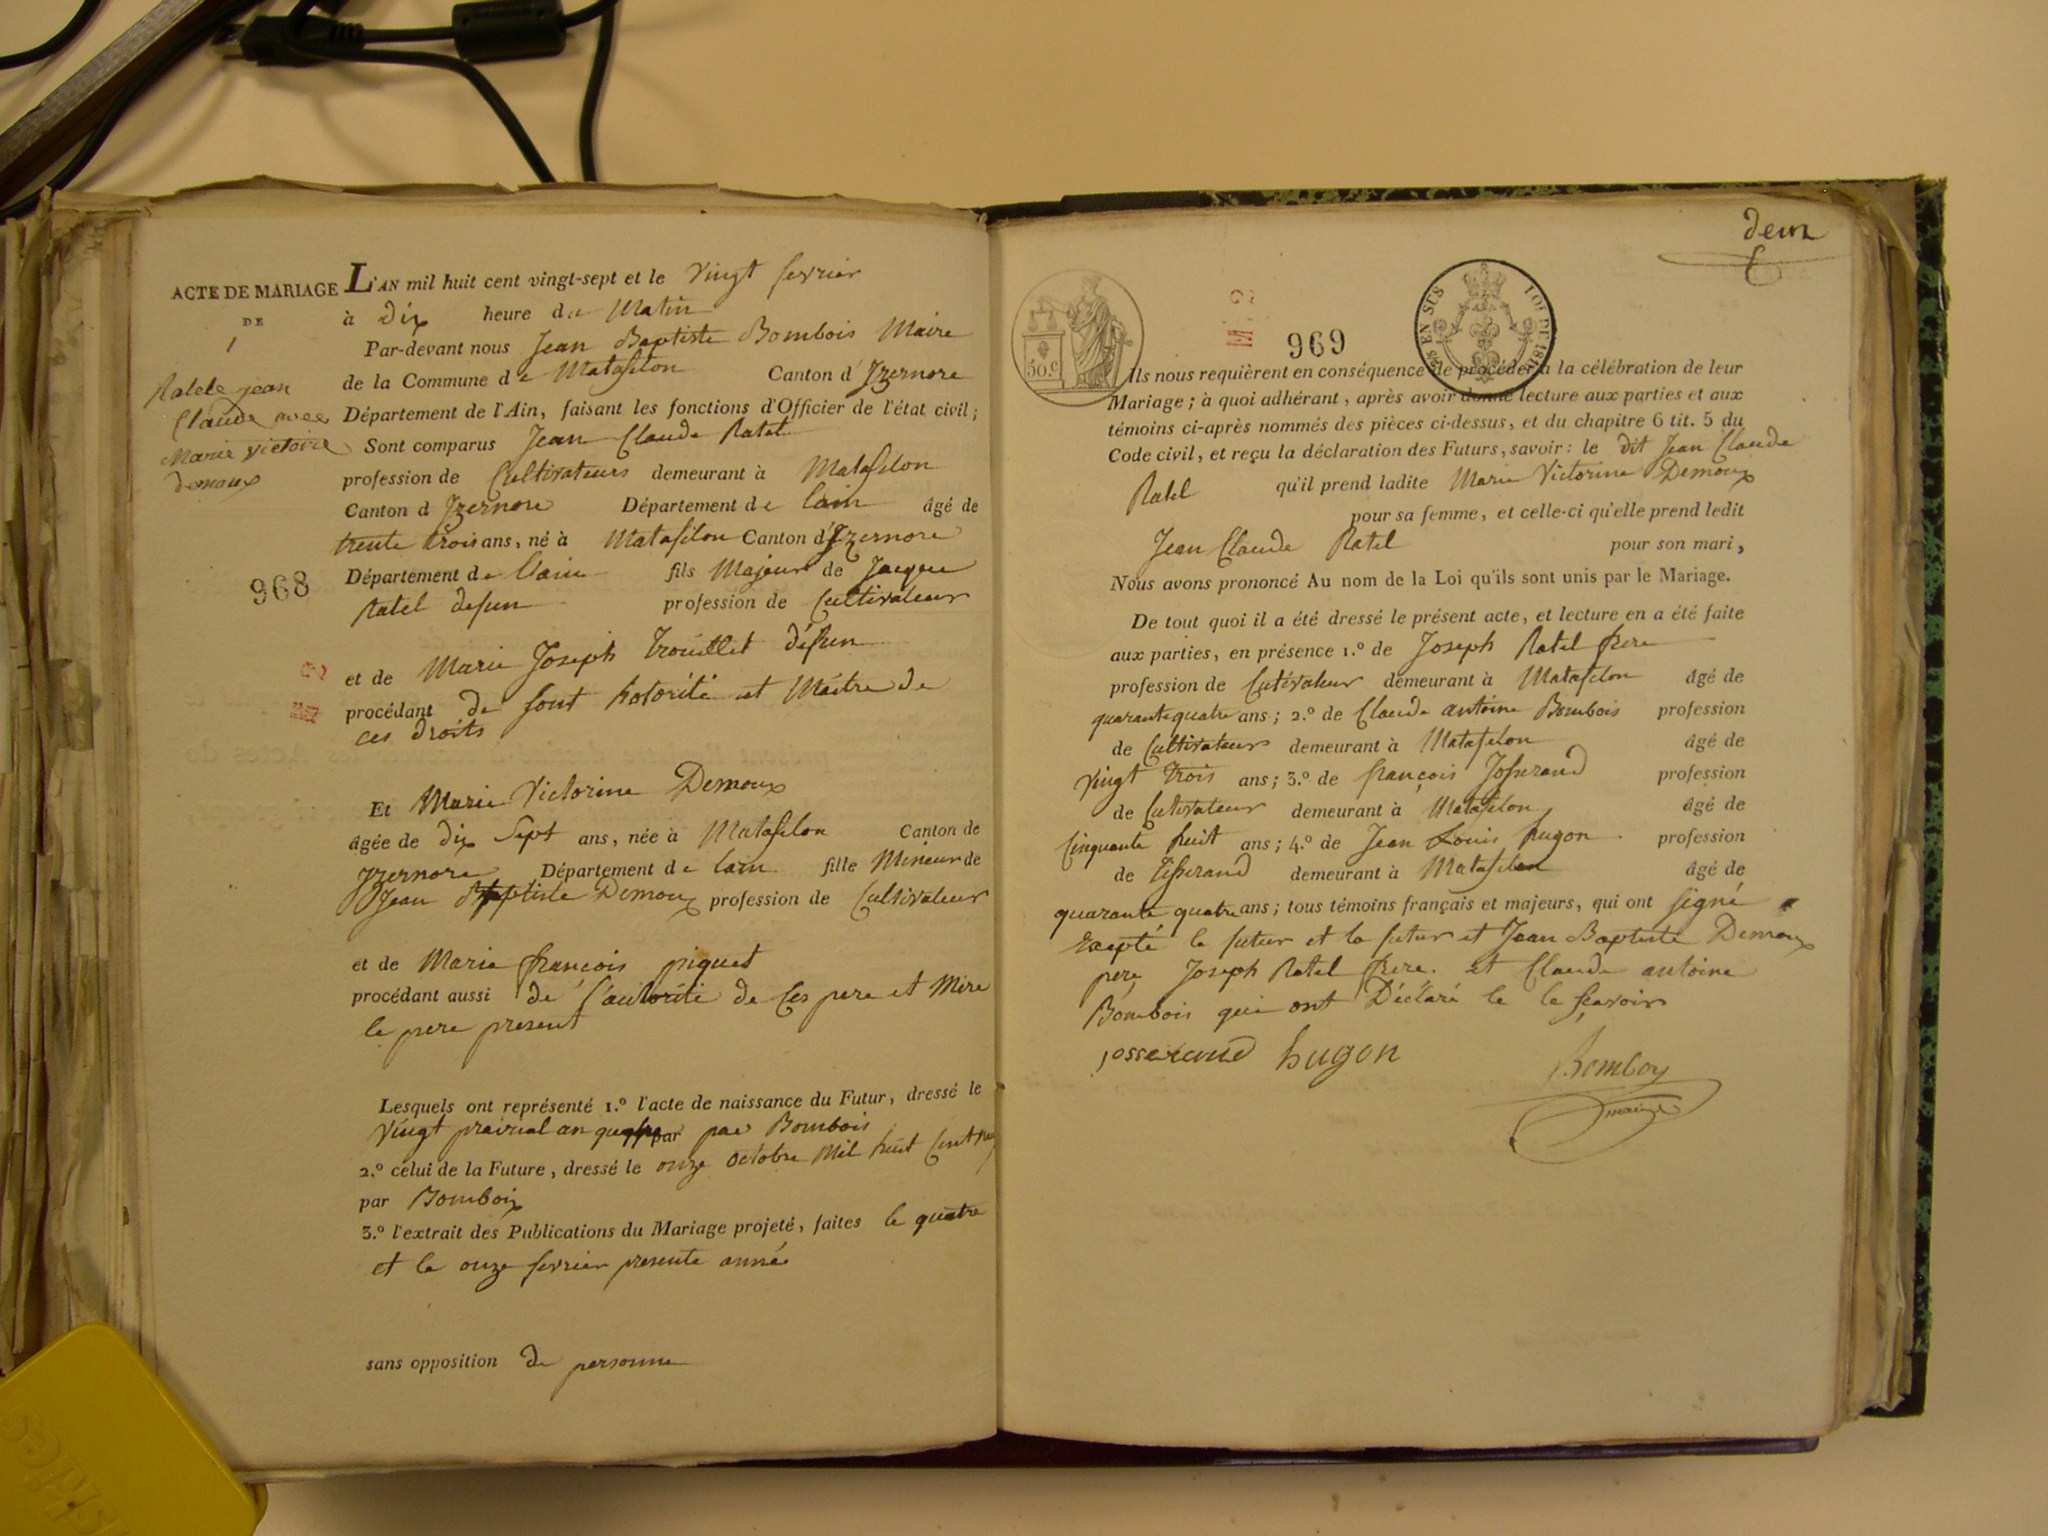 ACTE DE MARIAGE
DE
1
Ratele jean
Claude avec
Marie victoire
demoux
968
L'AN mil huit cent vingt-sept et le vingt fevrier
à Dix heure du Matin
Par-devant nous Jean Baptiste Bombois Maire
de la Commune de Matafelon Canton d'Izernore
Département de l'Ain, faisant les fonctions d'Officier de l'état civil;
Sont comparus Jean Claude Ratel
profession de Cultivateurs demeurant à Matafelon
Canton d Izernore Département de Lain âgé de
trente trois ans, né à Matafelon Canton d'Izernore
Département de Lain fils Majeur de Jacque
Ratel defun profession de Cultivateur
et de Marie Joseph Trouillet défun
procédant de sont hotorité et Maitre de
ces droits
Et Marie Victorine Demoux
âgée de dix Sept ans, née à Matafelon Canton de
Izernore Département de Lain fille Mineur de
Jean Baptiste Demoux profession de Cultivateur
et de Marie françois piquet
procédant aussi de l'autorité de Ces pere et Mere
le pere present
Lesquels ont représenté 1.º l'acte de naissance du Futur, dressé le
vingt prairial an par par Bombois
2.º celui de la Future, dressé le onze octobre Mil huit Cent neuf
par Bombois
3.º l'extrait des Publications du Mariage projeté, faites le quatre
et le onze fevrier presente année
sans opposition de personne
deux
50.c
969
EN SUS
LOI DE 1816
Ils nous requièrent en conséquence de procéder à la célébration de leur
Mariage; à quoi adhérant, après avoir donné lecture aux parties et aux
témoins ci-après nommés des pièces ci-dessus, et du chapitre 6 tit. 5 du
Code civil, et reçu la déclaration des Futurs, savoir: le dit Jean Claude
Ratel qu'il prend ladite Marie Victorine Demoux
pour sa femme, et celle-ci qu'elle prend ledit
Jean Claude Ratel pour son mari,
Nous avons prononcé Au nom de la Loi qu'ils sont unis par le Mariage.
De tout quoi il a été dressé le présent acte, et lecture en a été faite
aux parties, en présence 1.º de Joseph Ratel frere
profession de Cutivateur demeurant à Matafelon âgé de
quarante quatre ans; 2.º de Claude antoine Bombois profession
de Cultivateur demeurant à Matafelon âgé de
vingt trois ans; 3.º de françois Josserand profession
de Cutivateur demeurant à Matafelon âgé de
Cinquante huit ans; 4.º de Jean Louis hugon profession
de tisserand demeurant à Matafelon âgé de
quarante quatre ans; tous témoins français et majeurs, qui ont signé
Exepté le futur et la futur et Jean Baptiste Demoux
pere Joseph Ratel frere. et Claude antoine
Bombois qui ont Déclaré le le sçavoir
josserand hugon
Bomboy
maire